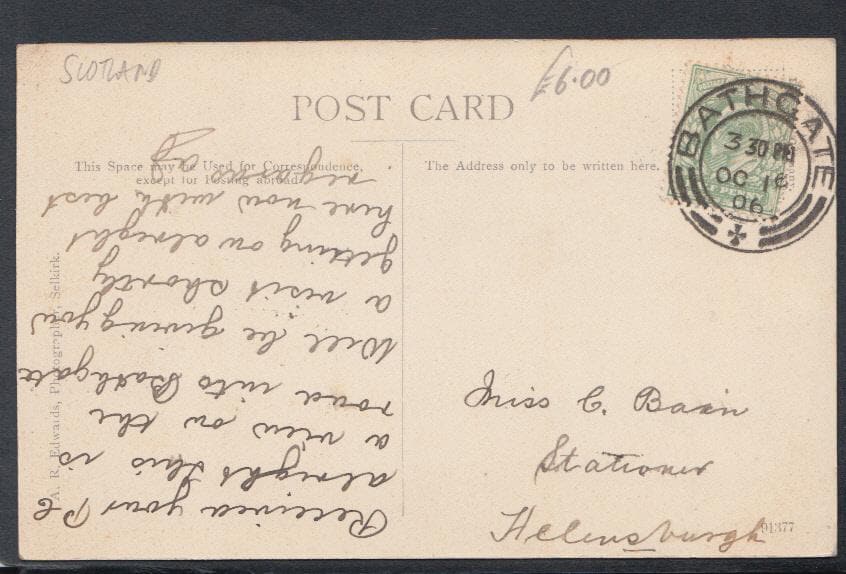 SCOTLAND
£6.00
POST CARD
This Space may be Used for Correspondence,
except for Posting abroad.
The Address only to be written here.
BATHGATE
3 30 PM
OC 16
06
Received your P.C
alright this is
a view on the
road into Bathgate
Will be giving you
a visit shortly
getting on alright
here now with best
regards
Miss C. Bain
Stationer
Helensburgh
A. R. Edwards, Photographer, Selkirk.
91377